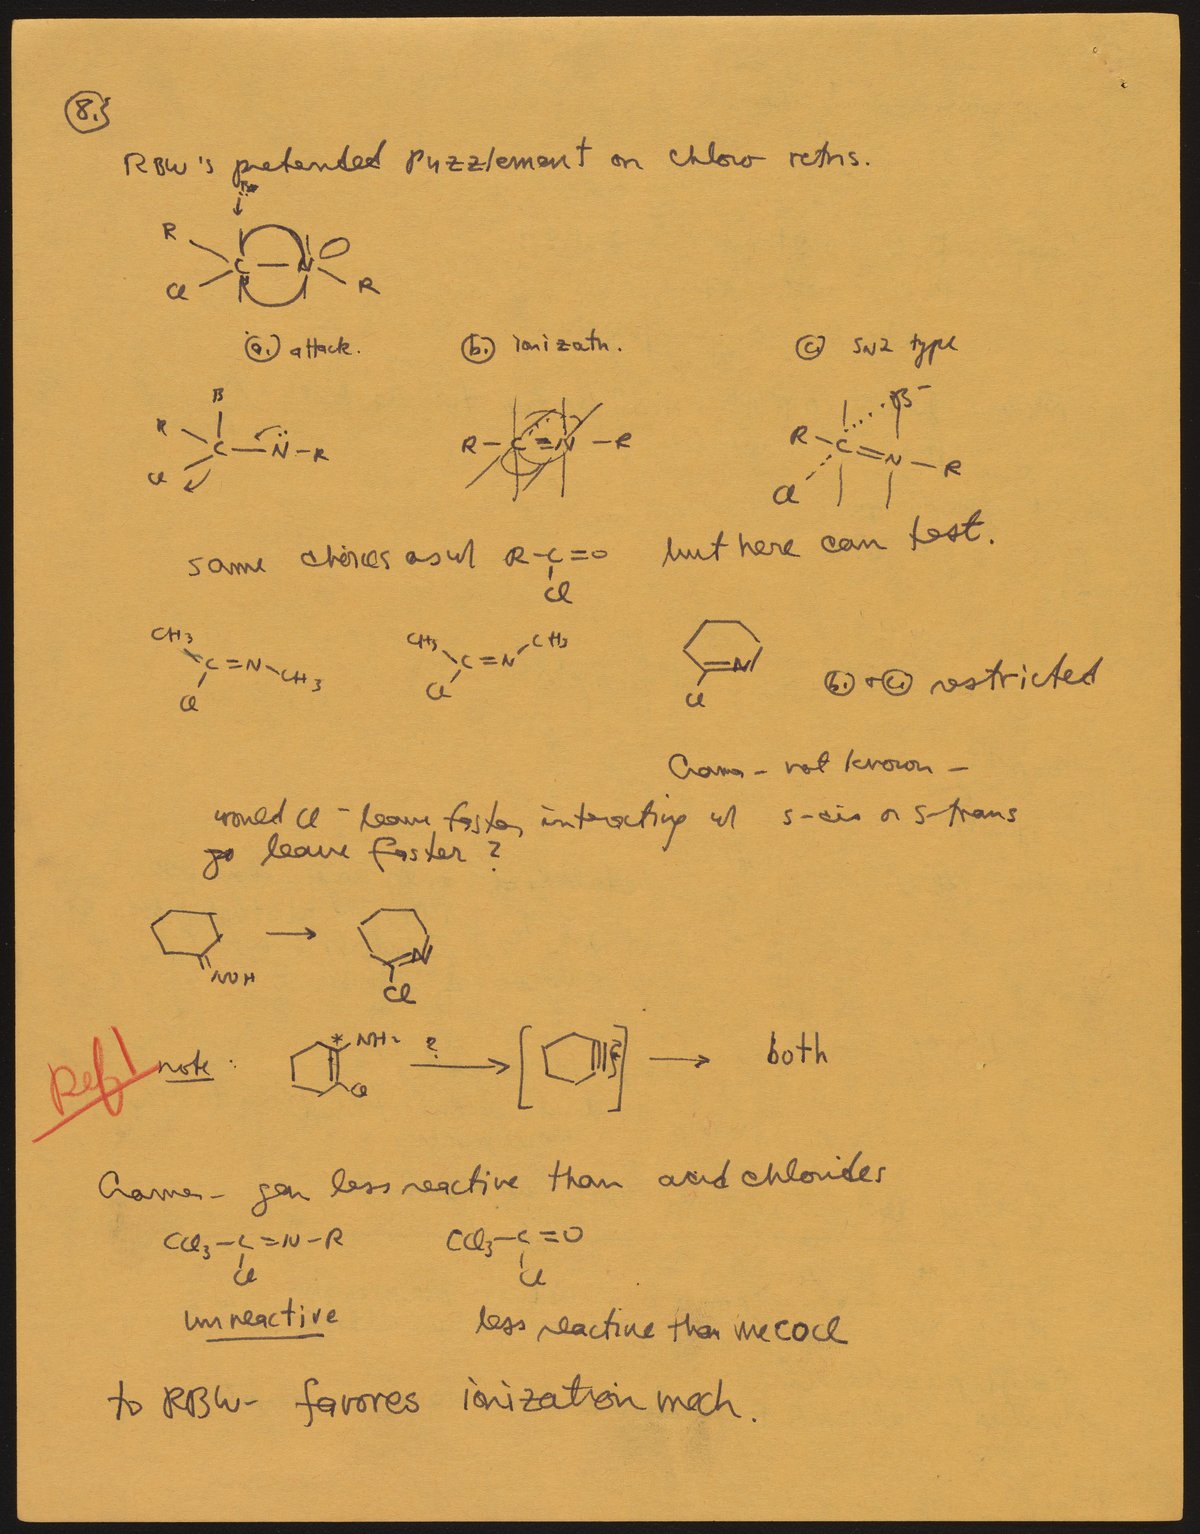 8.
RBW's pretended puzzlement on chloro retns.
B:
R
C — N
Cl R
a. attack. b. ionizatn. c SN2 type
B B⁻
R C — N̈ — R R — C = N — R R — C = N — R
Cl Cl
same choices as w/ R—C=O but here can test.
Cl
CH3 C=N CH3 CH3 C=N CH3 N
Cl Cl Cl
b. or c. restricted
Cramer - not known -
would Cl⁻ leave faster, interacting w/ s-cis or s-trans
go leave faster?
NOH → N
Cl
Ref 1
note: * NH2 ? → [ ] → both
Cl
Cramer - gen less reactive than acid chlorides
CCl3—C=N—R CCl3—C=O
Cl Cl
unreactive less reactive than MeCOCl
to RBW - favores ionization mech.